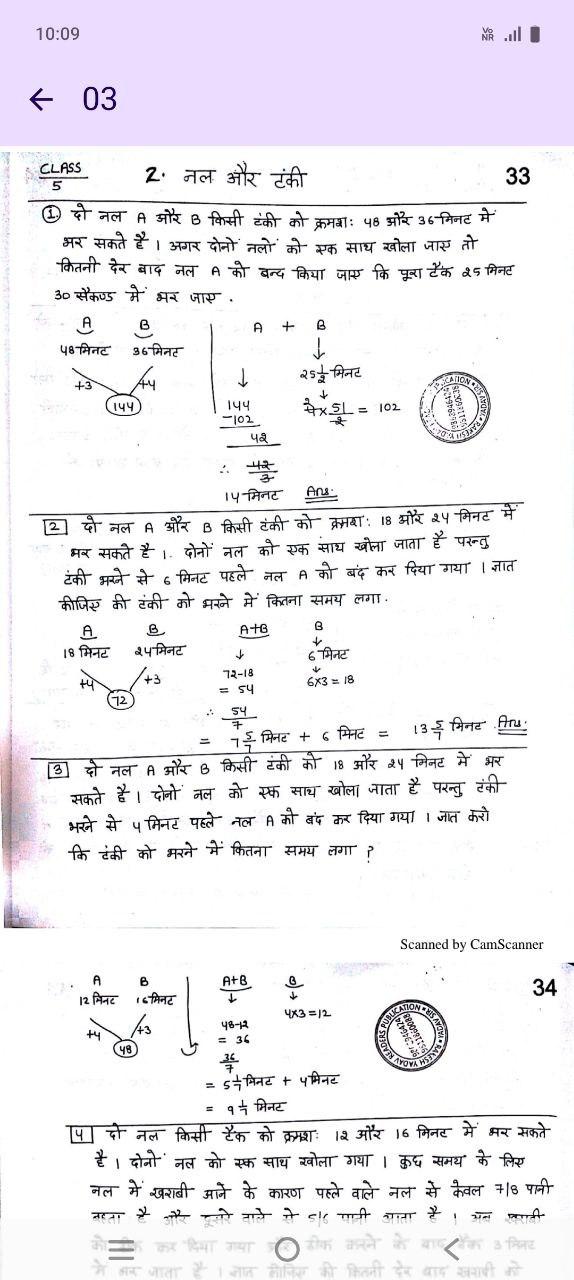 10:09
Vo NR
03
CLASS 5
2. नल और टंकी
33
① दो नल A और B किसी टंकी को क्रमशः 48 और 36 मिनट में
भर सकते है । अगर दोनों नलों को एक साथ खोला जाए तो
कितनी देर बाद नल A को बन्द किया जाए कि पूरा टैंक 25 मिनट
30 सैकण्ड में भर जाए .
A B A + B
48 मिनट 36 मिनट 25 1/2 मिनट
+3 +4
144
144
-102
42
× 51/2 = 102
∴ 42/3
14 मिनट Ans.
2 दो नल A और B किसी टंकी को क्रमशः 18 और 24 मिनट में
भर सकते है । दोनों नल को एक साथ खोला जाता है परन्तु
टंकी भरने से 6 मिनट पहले नल A को बंद कर दिया गया । ज्ञात
कीजिए की टंकी को भरने में कितना समय लगा .
A B A+B B
18 मिनट 24 मिनट 6 मिनट
+4 +3
72
72-18
= 54
6×3 = 18
∴ 54/7
= 7 5/7 मिनट + 6 मिनट = 13 5/7 मिनट Ans.
3 दो नल A और B किसी टंकी को 18 और 24 मिनट में भर
सकते है । दोनों नल को एक साथ खोला जाता है परन्तु टंकी
भरने से 4 मिनट पहले नल A को बंद कर दिया गया । ज्ञात करो
कि टंकी को भरने में कितना समय लगा ?
Scanned by CamScanner
34
A B A+B B
12 मिनट 16 मिनट
+4 +3
48
48-12
= 36
4×3=12
36/7
= 5 1/7 मिनट + 4 मिनट
= 9 1/7 मिनट
RAKESH YADAV READERS PUBLICATION
4 दो नल किसी टैंक को क्रमशः 12 और 16 मिनट में भर सकते
है । दोनों नल को एक साथ खोला गया । कुछ समय के लिए
नल में खराबी आने के कारण पहले वाले नल से केवल 7/8 पानी
बहता है और दूसरे वाले से 5/6 पानी आता है । अब खराबी
को ठीक कर दिया गया और ठीक करने के बाद टैंक 3 मिनट
में भर जाता है । ज्ञात कीजिए की कितनी देर बाद खराबी को